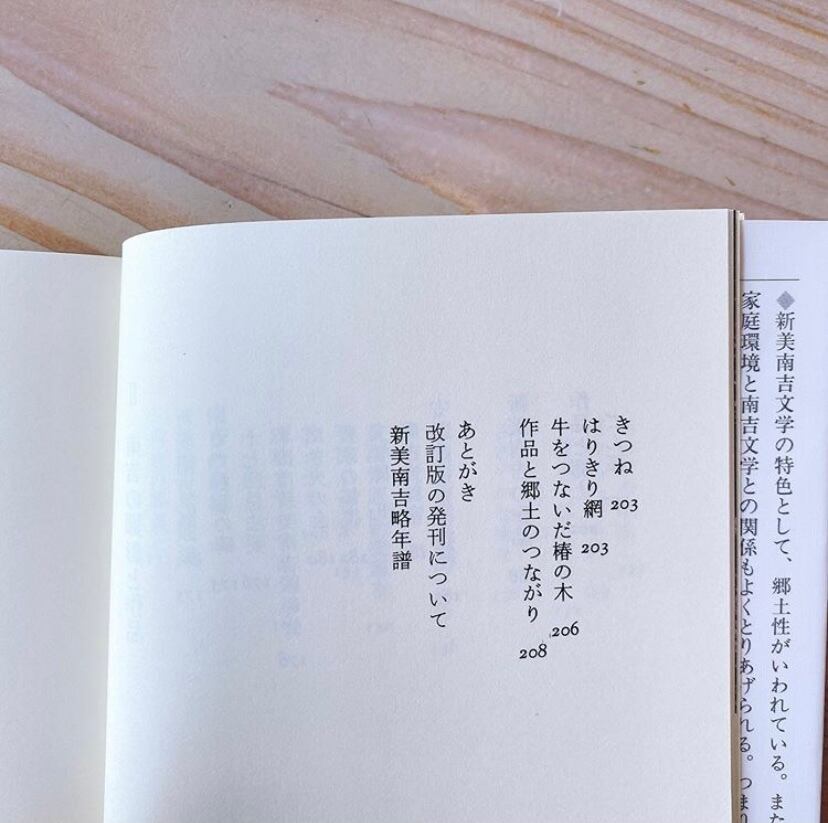 ◆新美南吉文学の特色として、郷土性がいわれている。また
家庭環境と南吉文学との関係もよくとりあげられる。つまり
きつね 203
はりきり網 203
牛をつないだ椿の木 206
作品と郷土のつながり 208
あとがき
改訂版の発刊について
新美南吉略年譜